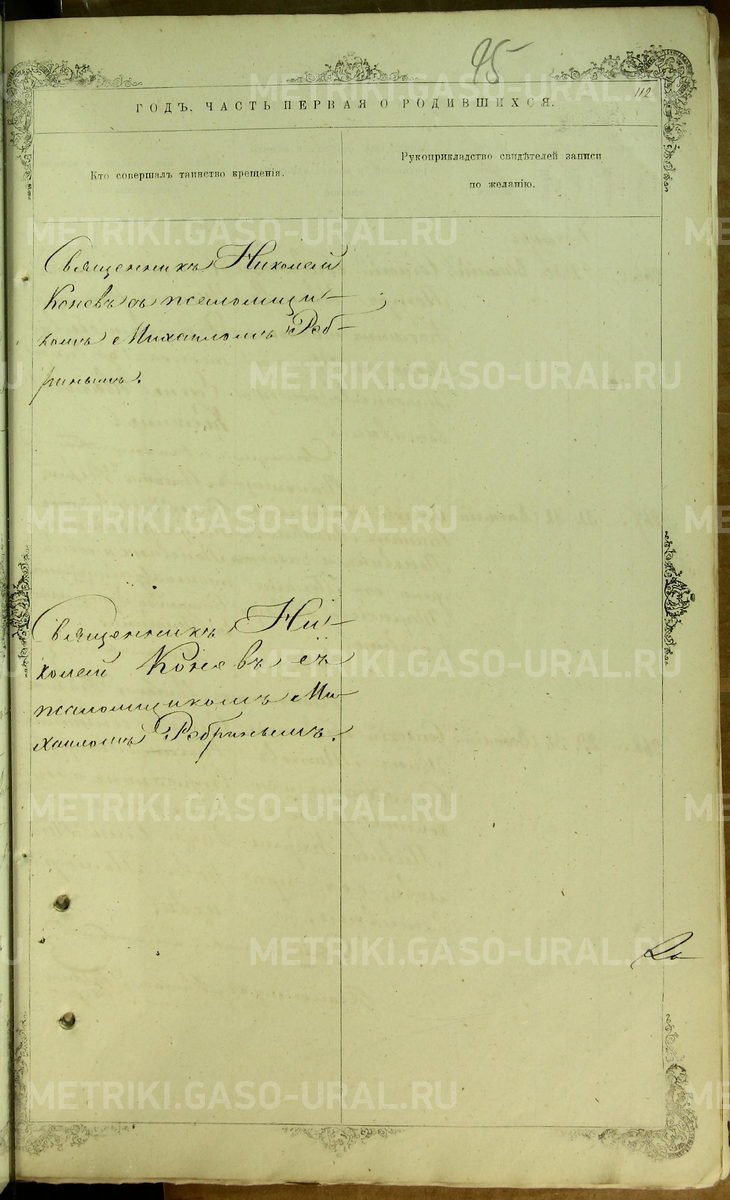 95
112
ГОДЪ, ЧАСТЬ ПЕРВАЯ О РОДИВШИХСЯ.
Кто совершалъ таинство крещенія.
Рукоприкладство свидѣтелей записи
по желанію.
Священникъ Николай
Коневъ съ псаломщи-
комъ Михаиломъ Ряб-
ринымъ.
Священникъ Ни-
колай Коневъ съ
псаломщикомъ Ми-
хаиломъ Рябринымъ.
METRIKI.GASO-URAL.RU